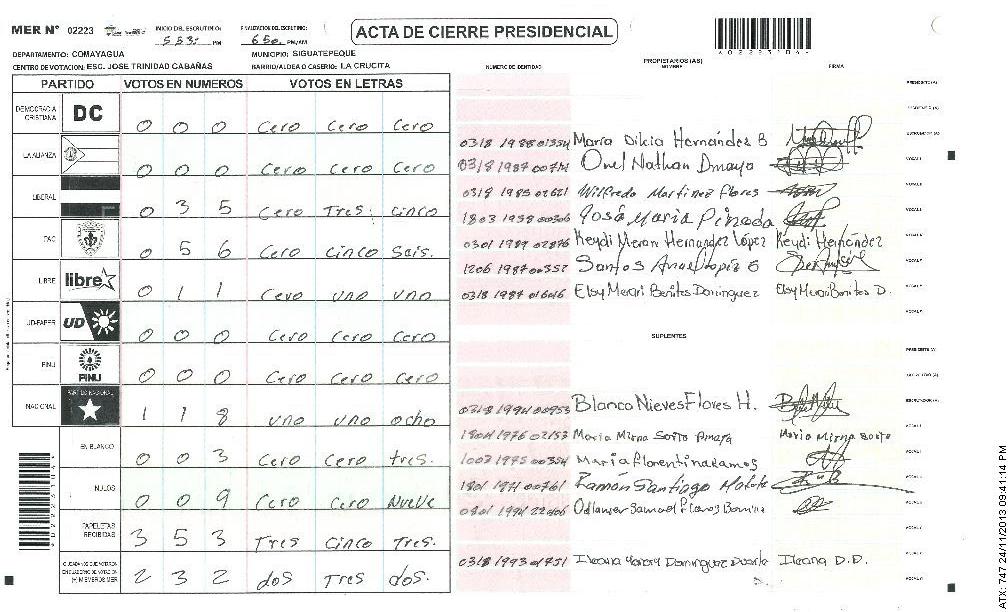 MER Nº 02223 INICIO DEL ESCRUTINIO: FINALIZACION DEL ESCRUTINIO: ACTA DE CIERRE PRESIDENCIAL
PM 650 PM/AM
DEPARTAMENTO: COMAYAGUA MUNICIPIO: SIGUATEPEQUE
CENTRO DE VOTACION: ESC. JOSE TRINIDAD CABAÑAS BARRIO/ALDEA O CASERIO: LA CRUCITA
NUMERO DE IDENTIDAD PROPIETARIOS (AS) NOMBRE FIRMA
PARTIDO VOTOS EN NUMEROS VOTOS EN LETRAS
DEMOCRACIA CRISTIANA DC 0 0 0 Cero Cero Cero
LA ALIANZA 0 0 0 Cero Cero Cero
LIBERAL 0 3 5 Cero Tres Cinco
PAC 0 5 6 Cero Cinco Sais.
LIBRE libre 0 1 1 Cero uno uno
UD-FAPER UD 0 0 0 Cero Cero Cero
PINU PINU 0 0 0 Cero Cero Cero
NACIONAL PARTIDO NACIONAL 1 1 8 uno uno ocho
EN BLANCO 0 0 3 Cero Cero tres.
NULOS 0 0 9 Cero Cero Nueve
PAPELETAS RECIBIDAS 3 5 3 Tres Cinco Tres.
CIUDADANOS QUE VOTARON EN CUADERNO DE VOTACION (+) MIEMBROS MER 2 3 2 dos Tres dos.
0318 1988 01354 Maria Dilcia Hernández B
0318 1987 00714 Onel Nathan Amaya
0318 1985 02621 Wilfredo Martinez Flores
1803 1958 00306 José Maria Pineda
0301 1989 02876 Keydi Meran Hernandez López Keydi Hernández
1206 1987 00357 Santos
0318 1987 01646 Elsy Merari Benites Dominguez Elsy Merari Benites D.
SUPLENTES
0318 1994 00953 Blanca Nieves Flores H.
1804 1976 02153 Maria Mirna Sorto Amaya Maria Mirna Sorto
1007 1975 00354 Maria florentina Ramos
1801 1971 00761 Ramón Santiago
Samuel Flores
0318 1993 01751 Ileana Dominguez Duarte Ileana D.D.
ATX: 747 24/11/2013 09:41:14 PM